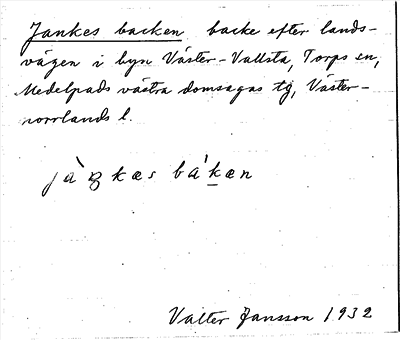 Jankes backen backe efter lands-
vägen i byn Väster-Vallsta, Torps sn,
Medelpads västra domsagas tg, Väster-
norrlands l.
jàŋkæs bákæn
Valter Jansson 1932